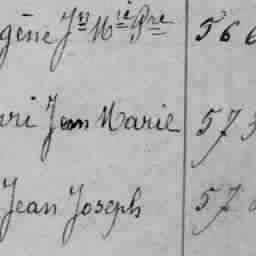 gène Jn Mie Pre 566
ri Jean Marie 573
Jean Joseph 57